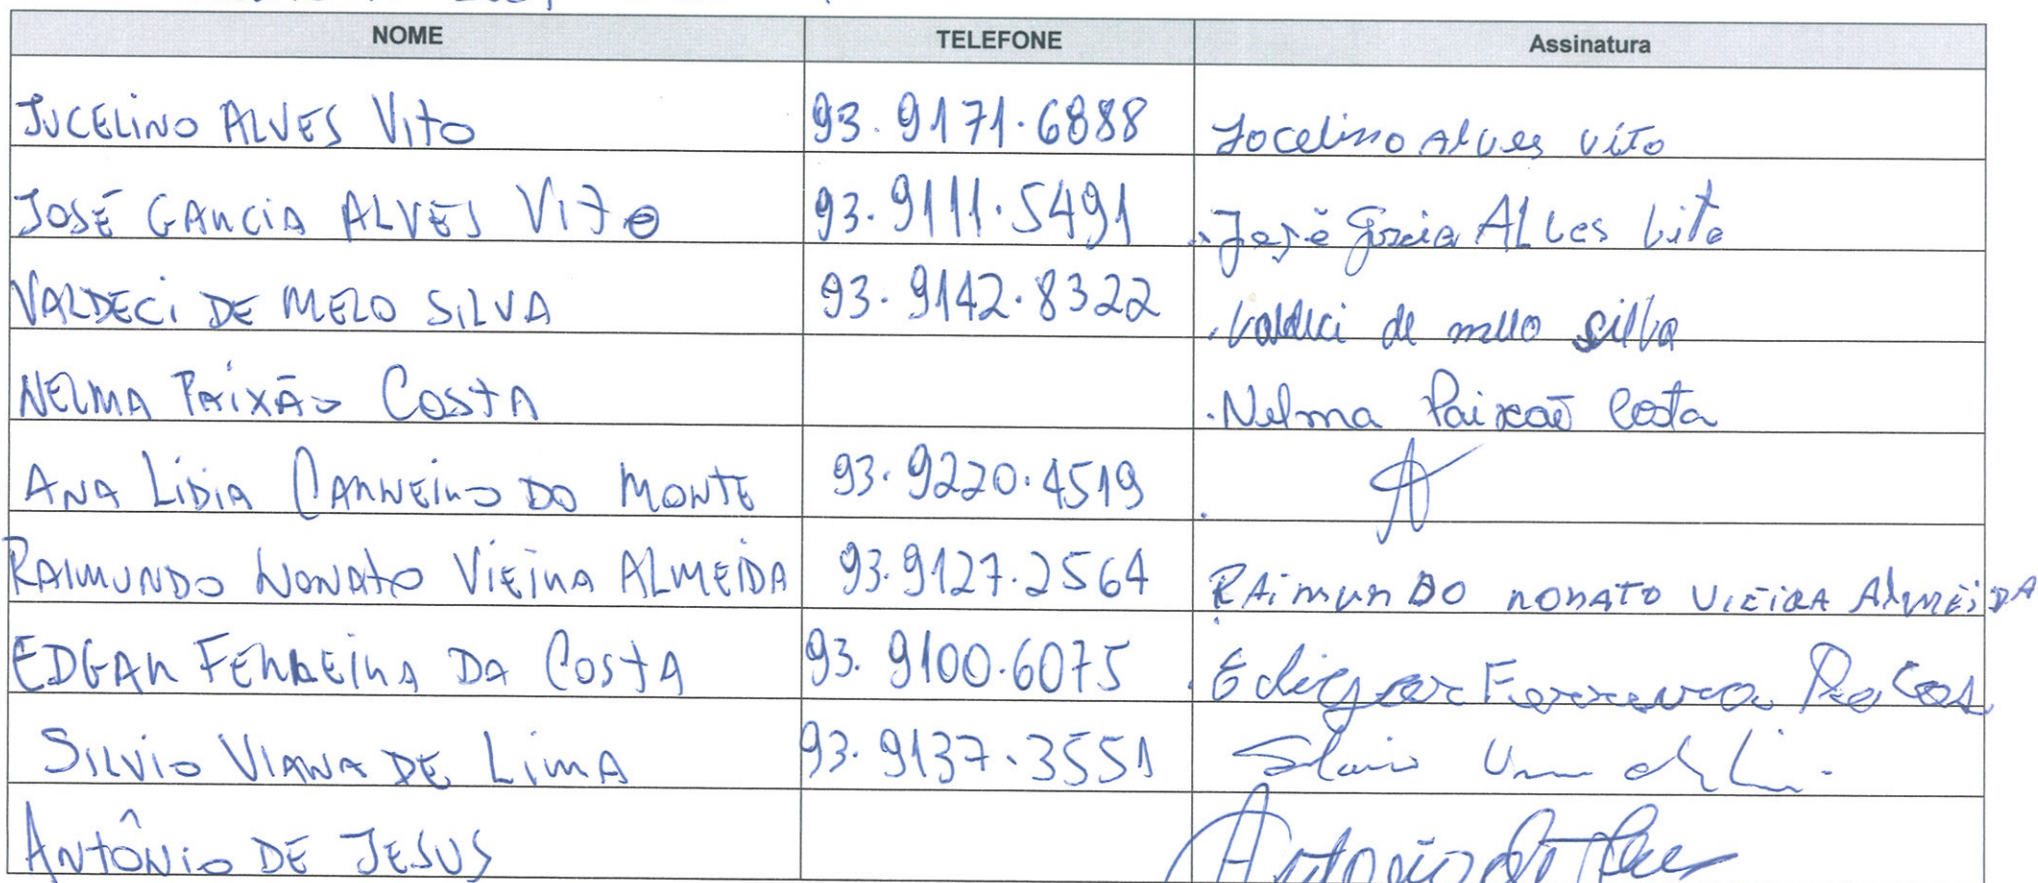 NOME TELEFONE Assinatura
JUCELINO ALVES VITO 93.9171.6888 Jocelino Alves Vito
JOSÉ GARCIA ALVES VITO 93.9111.5491 José Garcia ALves Vito
VALDECI DE MELO SILVA 93.9142.8322 Valdeci de mello silva
NELMA PAIXÃO COSTA Nelma Paixão Costa
ANA LIDIA CARNEIRO DO MONTE 93.9220.4519 A
RAIMUNDO NONATO VIEIRA ALMEIDA 93.9127.2564 RAimunDO NONATO VIEIRA AlMEiDA
EDGAR FERREIRA DA COSTA 93.9100.6075 Edigar Ferreira Da Cos
SILVIO VIANA DE LIMA 93.9137.3551 Silvio
ANTÔNIO DE JESUS Antonio de